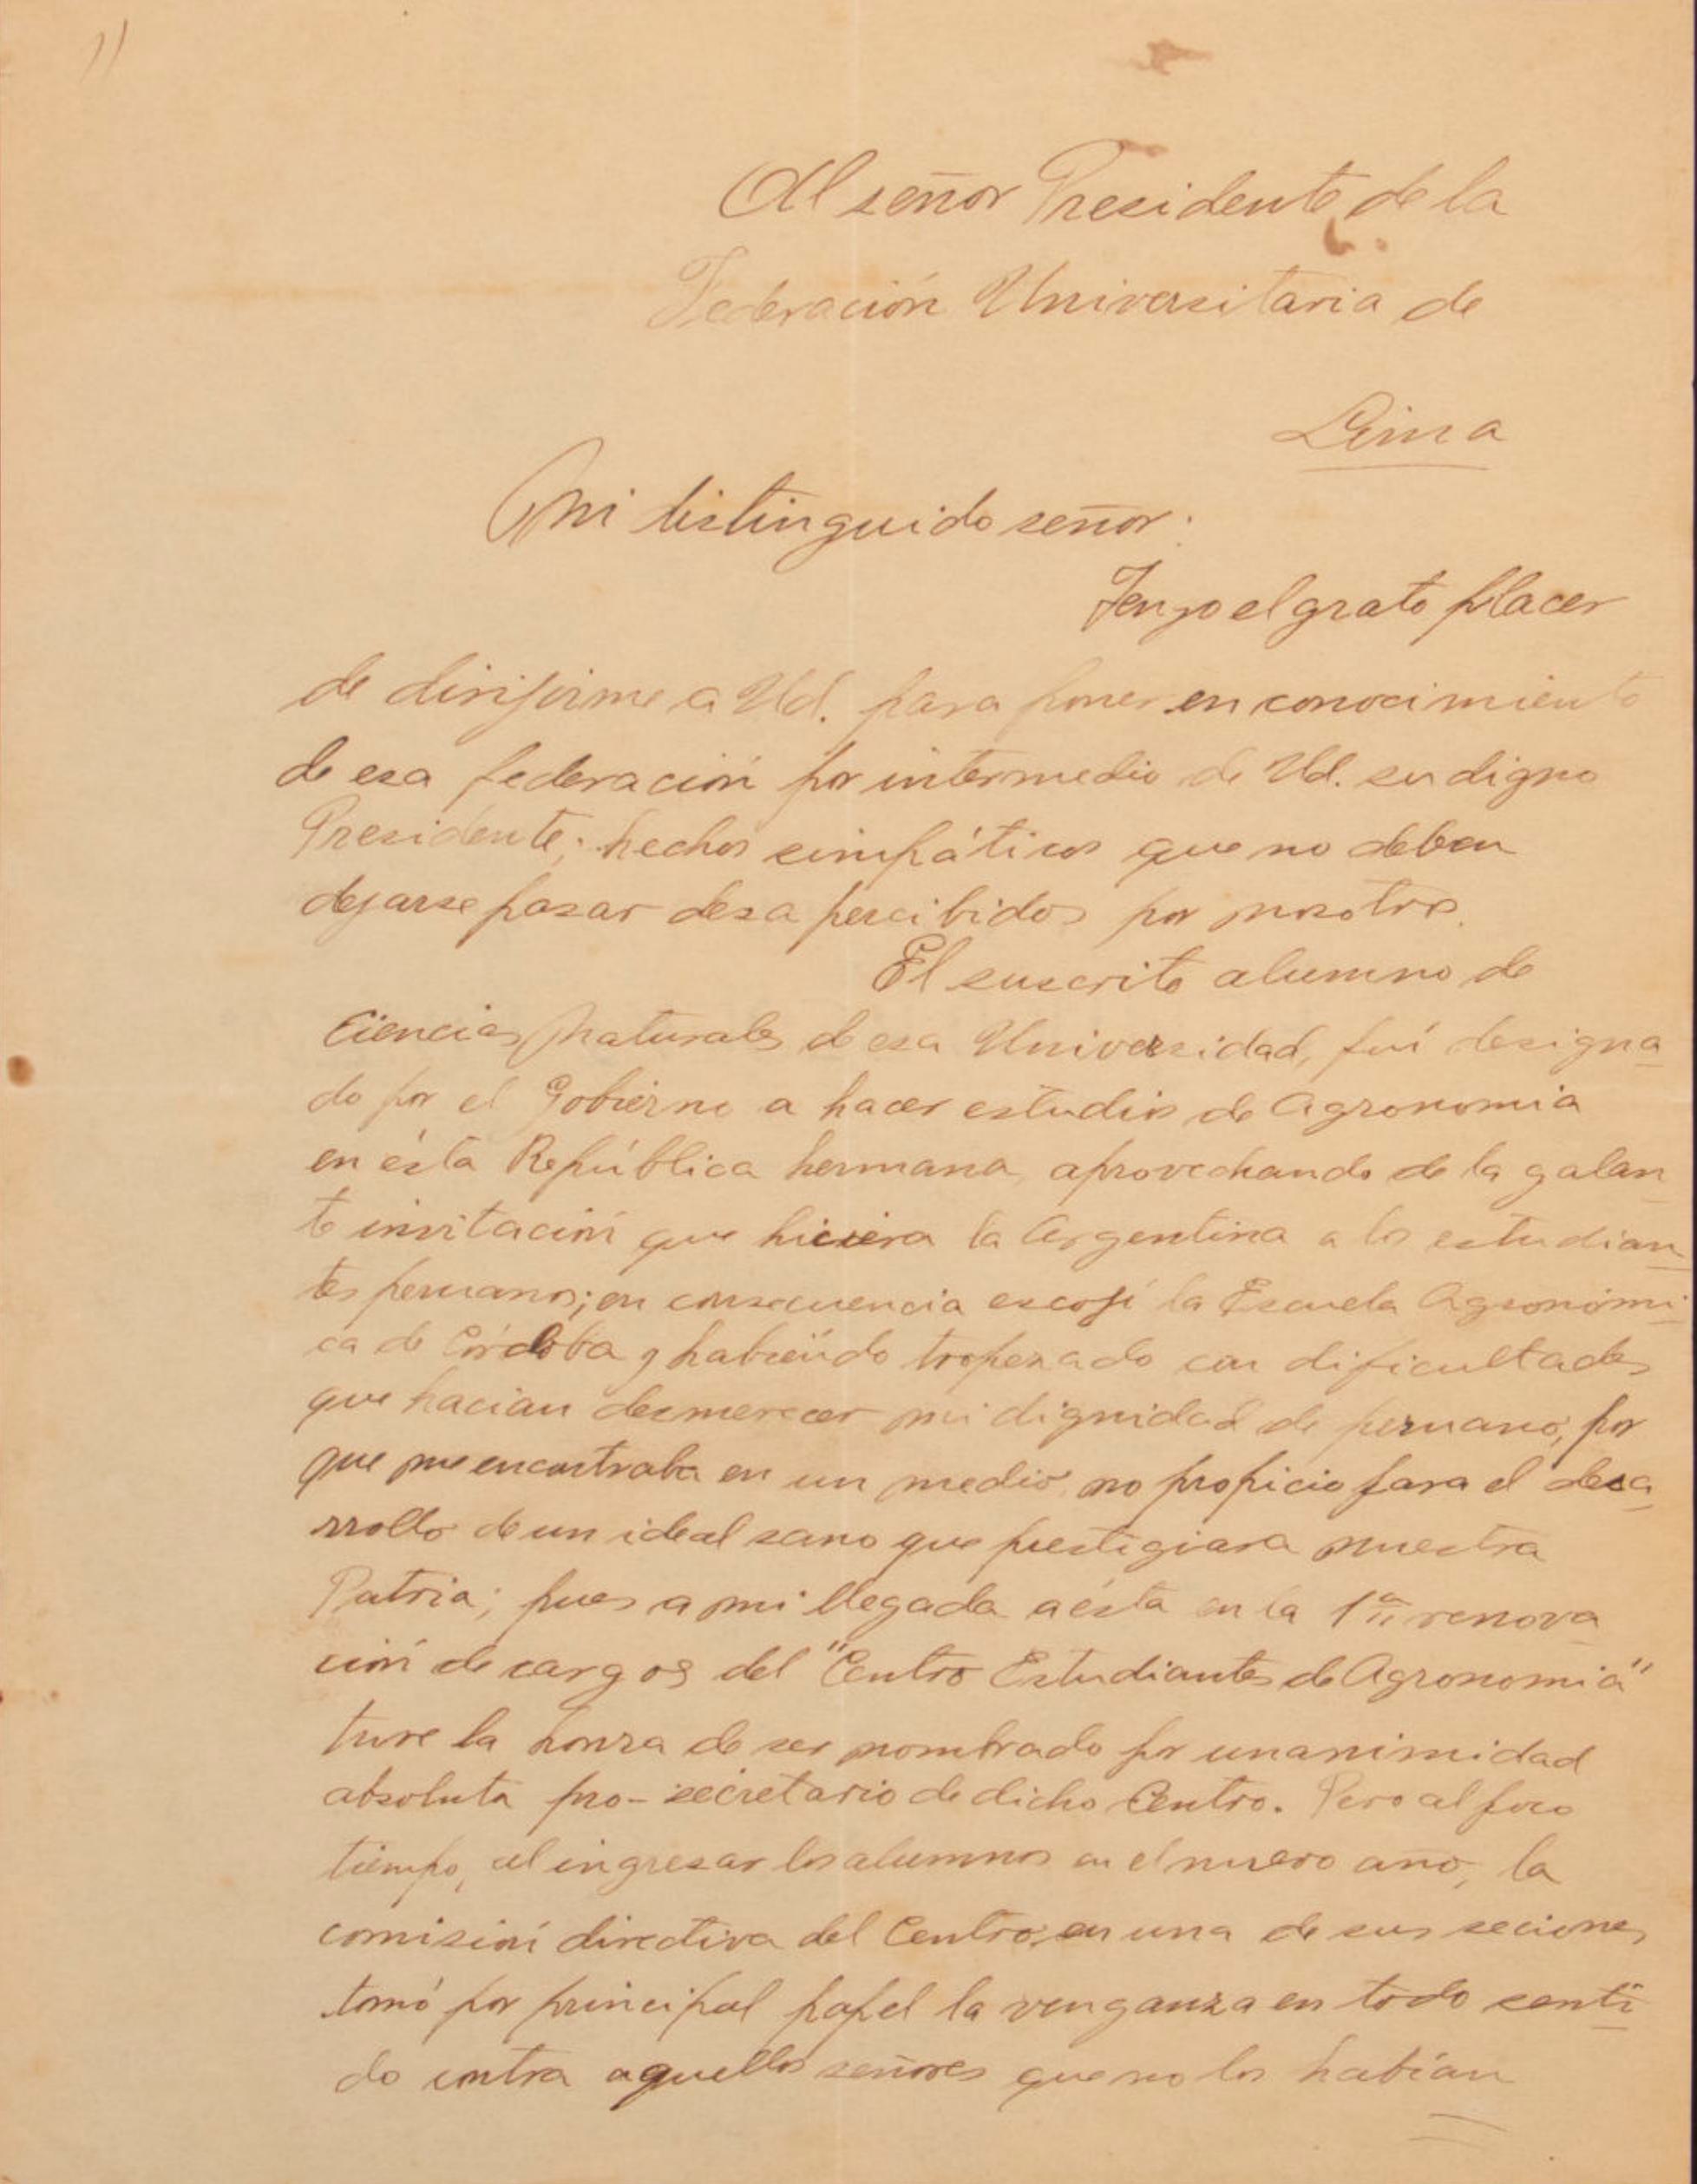 Al señor Presidente de la
Federación Universitaria de
Lima
Mi distinguido señor:
Tengo el grato placer
de dirijirme a Ud. para poner en conocimiento
de esa federación por intermedio de Ud. su digno
Presidente; hechos simpáticos que no deben
dejarse pasar desapercibidos por nosotros.
El suscrito alumno de
Ciencias Naturales de esa Universidad, fuí designa
do por el Gobierno a hacer estudios de Agronomia
en ésta República hermana, aprovechando de la galan
te invitación que hiciera la Argentina a los estudian
tes peruanos; en consecuencia escojí la Escuela Agronómi
ca de Córdoba y habiendo tropezado con dificultades
que hacian desmerecer mi dignidad de peruano, por
que me encontraba en un medio no propicio para el desa
rrollo de un ideal sano que prestigiara nuestra
Patria; pues a mi llegada a ésta en la 1ª renova
ción de cargos del "Centro Estudiantes de Agronomia"
tuve la honra de ser nombrado por unanimidad
absoluta pro-secretario de dicho Centro. Pero al poco
tiempo, al ingresar los alumnos en el nuevo año, la
comisión directiva del Centro, en una de sus seciones
tomó por principal papel la venganza en todo senti
do contra aquellos señores que no los habían